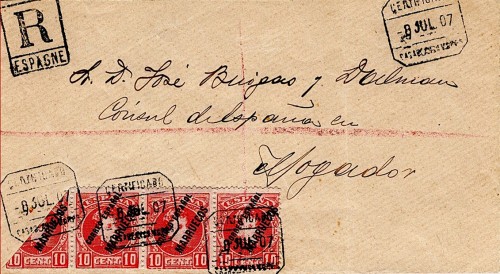 R
ESPAGNE
CERTIFICADO
-8 JUL. 07
A. D. José Buigas y Dalmau
Cónsul de España en
Mogador
CERTIFICADO
-8 JUL. 07
CERTIFICADO
-8 JUL. 07
-8 JUL. 07
MARRUECOS
MARRUECOS
MARRUECOS
MARRUECOS
10 CENT. 10
10 CENT. 10
10 CENT. 10
10 CENT. 10